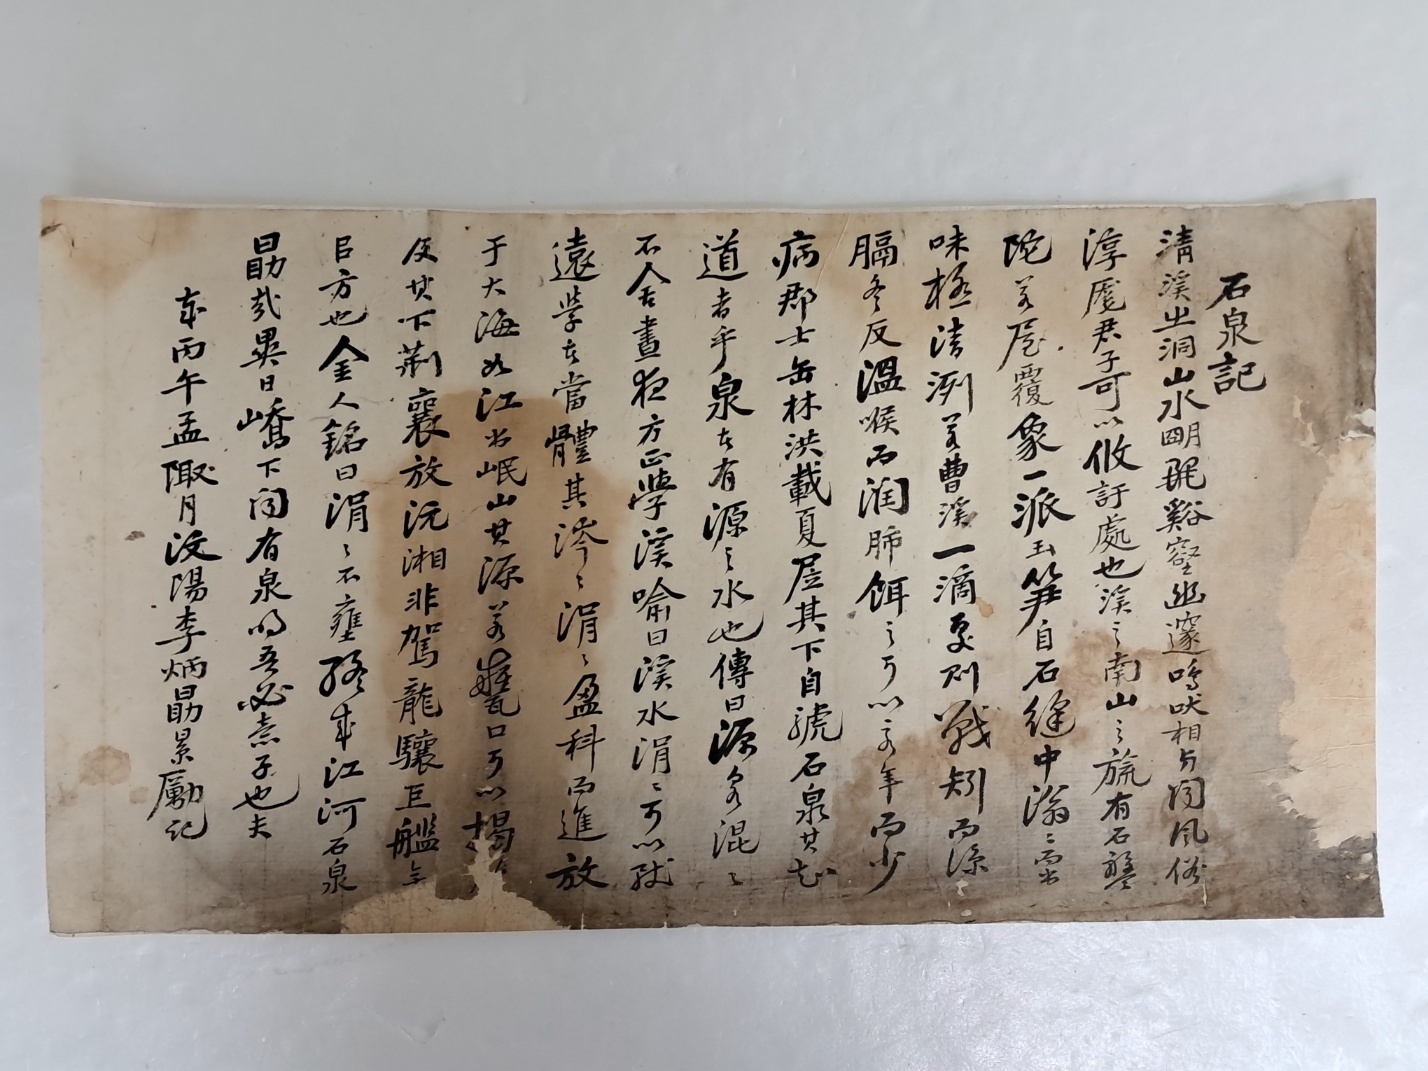 石泉記
清溪出洞山水明麗谿壑幽邃鳴吠相與同風俗
淳厖君子可以攸訏處也溪之南山之巃有石盤
陀若屋覆象一派玉笋自石縫中滃滃而出
味極淸冽若曹溪一滴夏則戰齒而涼
膈冬反溫喉而潤肺餌之可以永年而少
病郡士岳林洪載夏屋其下自號石泉其志
道者乎泉在有源之水也傳曰源泉混混
不舍晝夜方正學溪喩曰溪水涓涓可以致
遠學在當體其涔涔涓涓盈科而進放
于大海如江出岷山其源若甕口可以
及其下荊襄放沅湘非駕龍驤巨艦
巨方也金人銘曰涓涓不壅終成江河石泉
勗哉異日嶠下聞有泉鳴吾必意子也夫
歲丙午孟陬月汶陽李炳勗景勵記